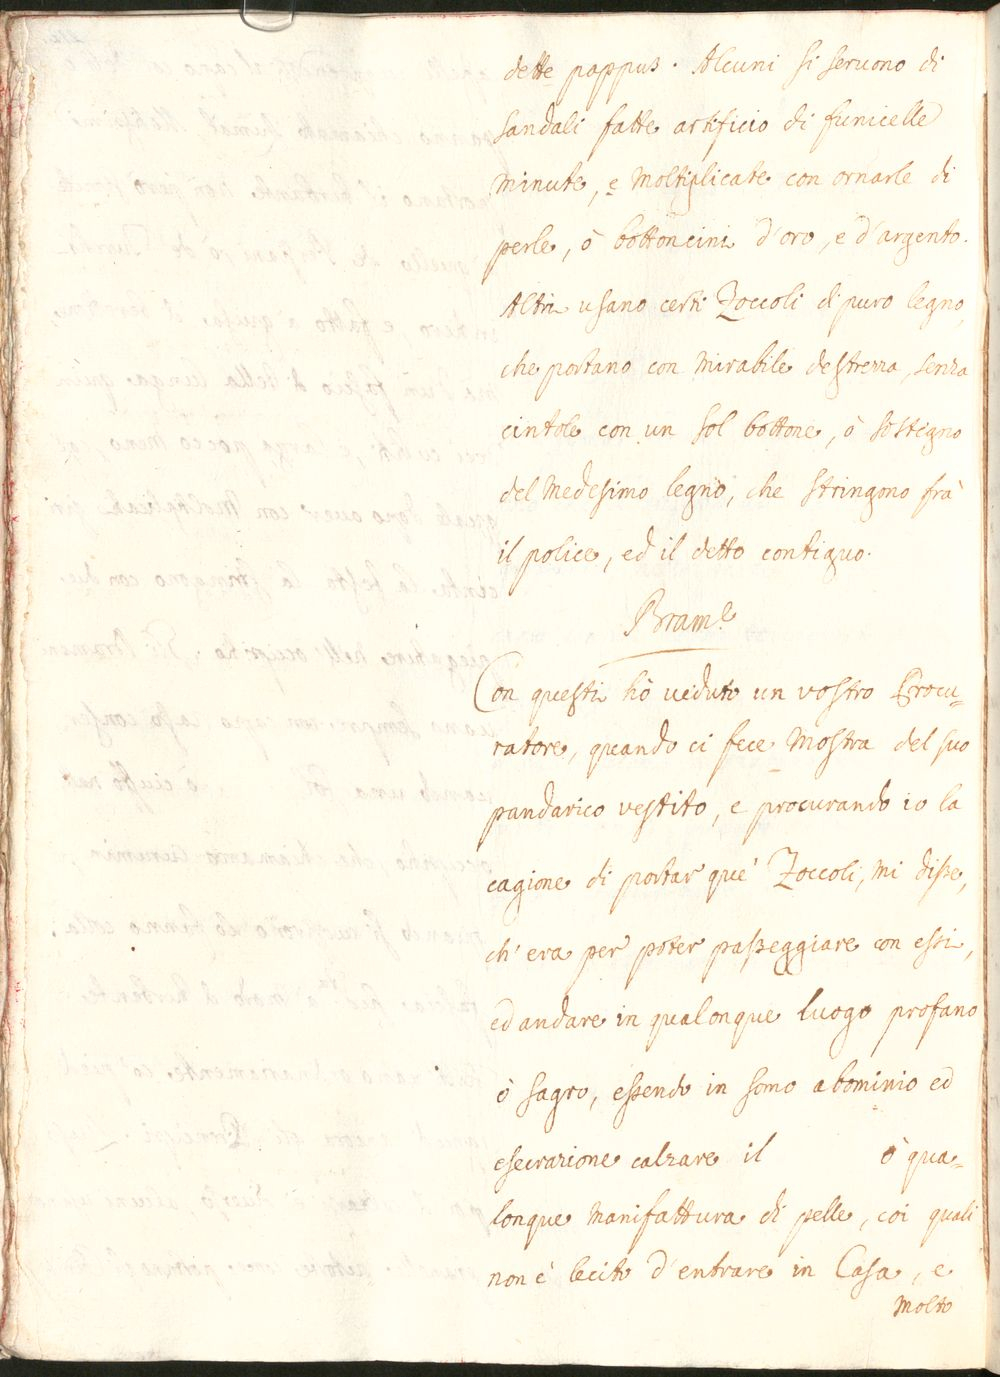 dette pappus. Alcuni si seruono di
sandali fatte artificio di funicelle
minute, e moltiplicate con ornarle di
perle, ò bottoncini d'oro, e d'argento.
Altri usano certi Zoccoli di puro legno,
che portano con mirabile destrezza, senza
cintole con un sol bottone, ò sostegno
del medesimo legno, che stringono frà
il police, ed il detto contiguo.
Bram.e
Con questi hò ueduto un vostro Procu=
ratore, quando ci fece mostra del suo
pandarico vestito, e procurando io la
cagione di portar que' Zoccoli, mi disse,
ch'era per poter passeggiare con essi,
ed andare in qualonque luogo profano
ò sagro, essendo in somo abominio ed
esecrazione calzare il ò qua=
lonque manifattura di pelle, coi quali
non è lecito d'entrare in Casa, e
molto